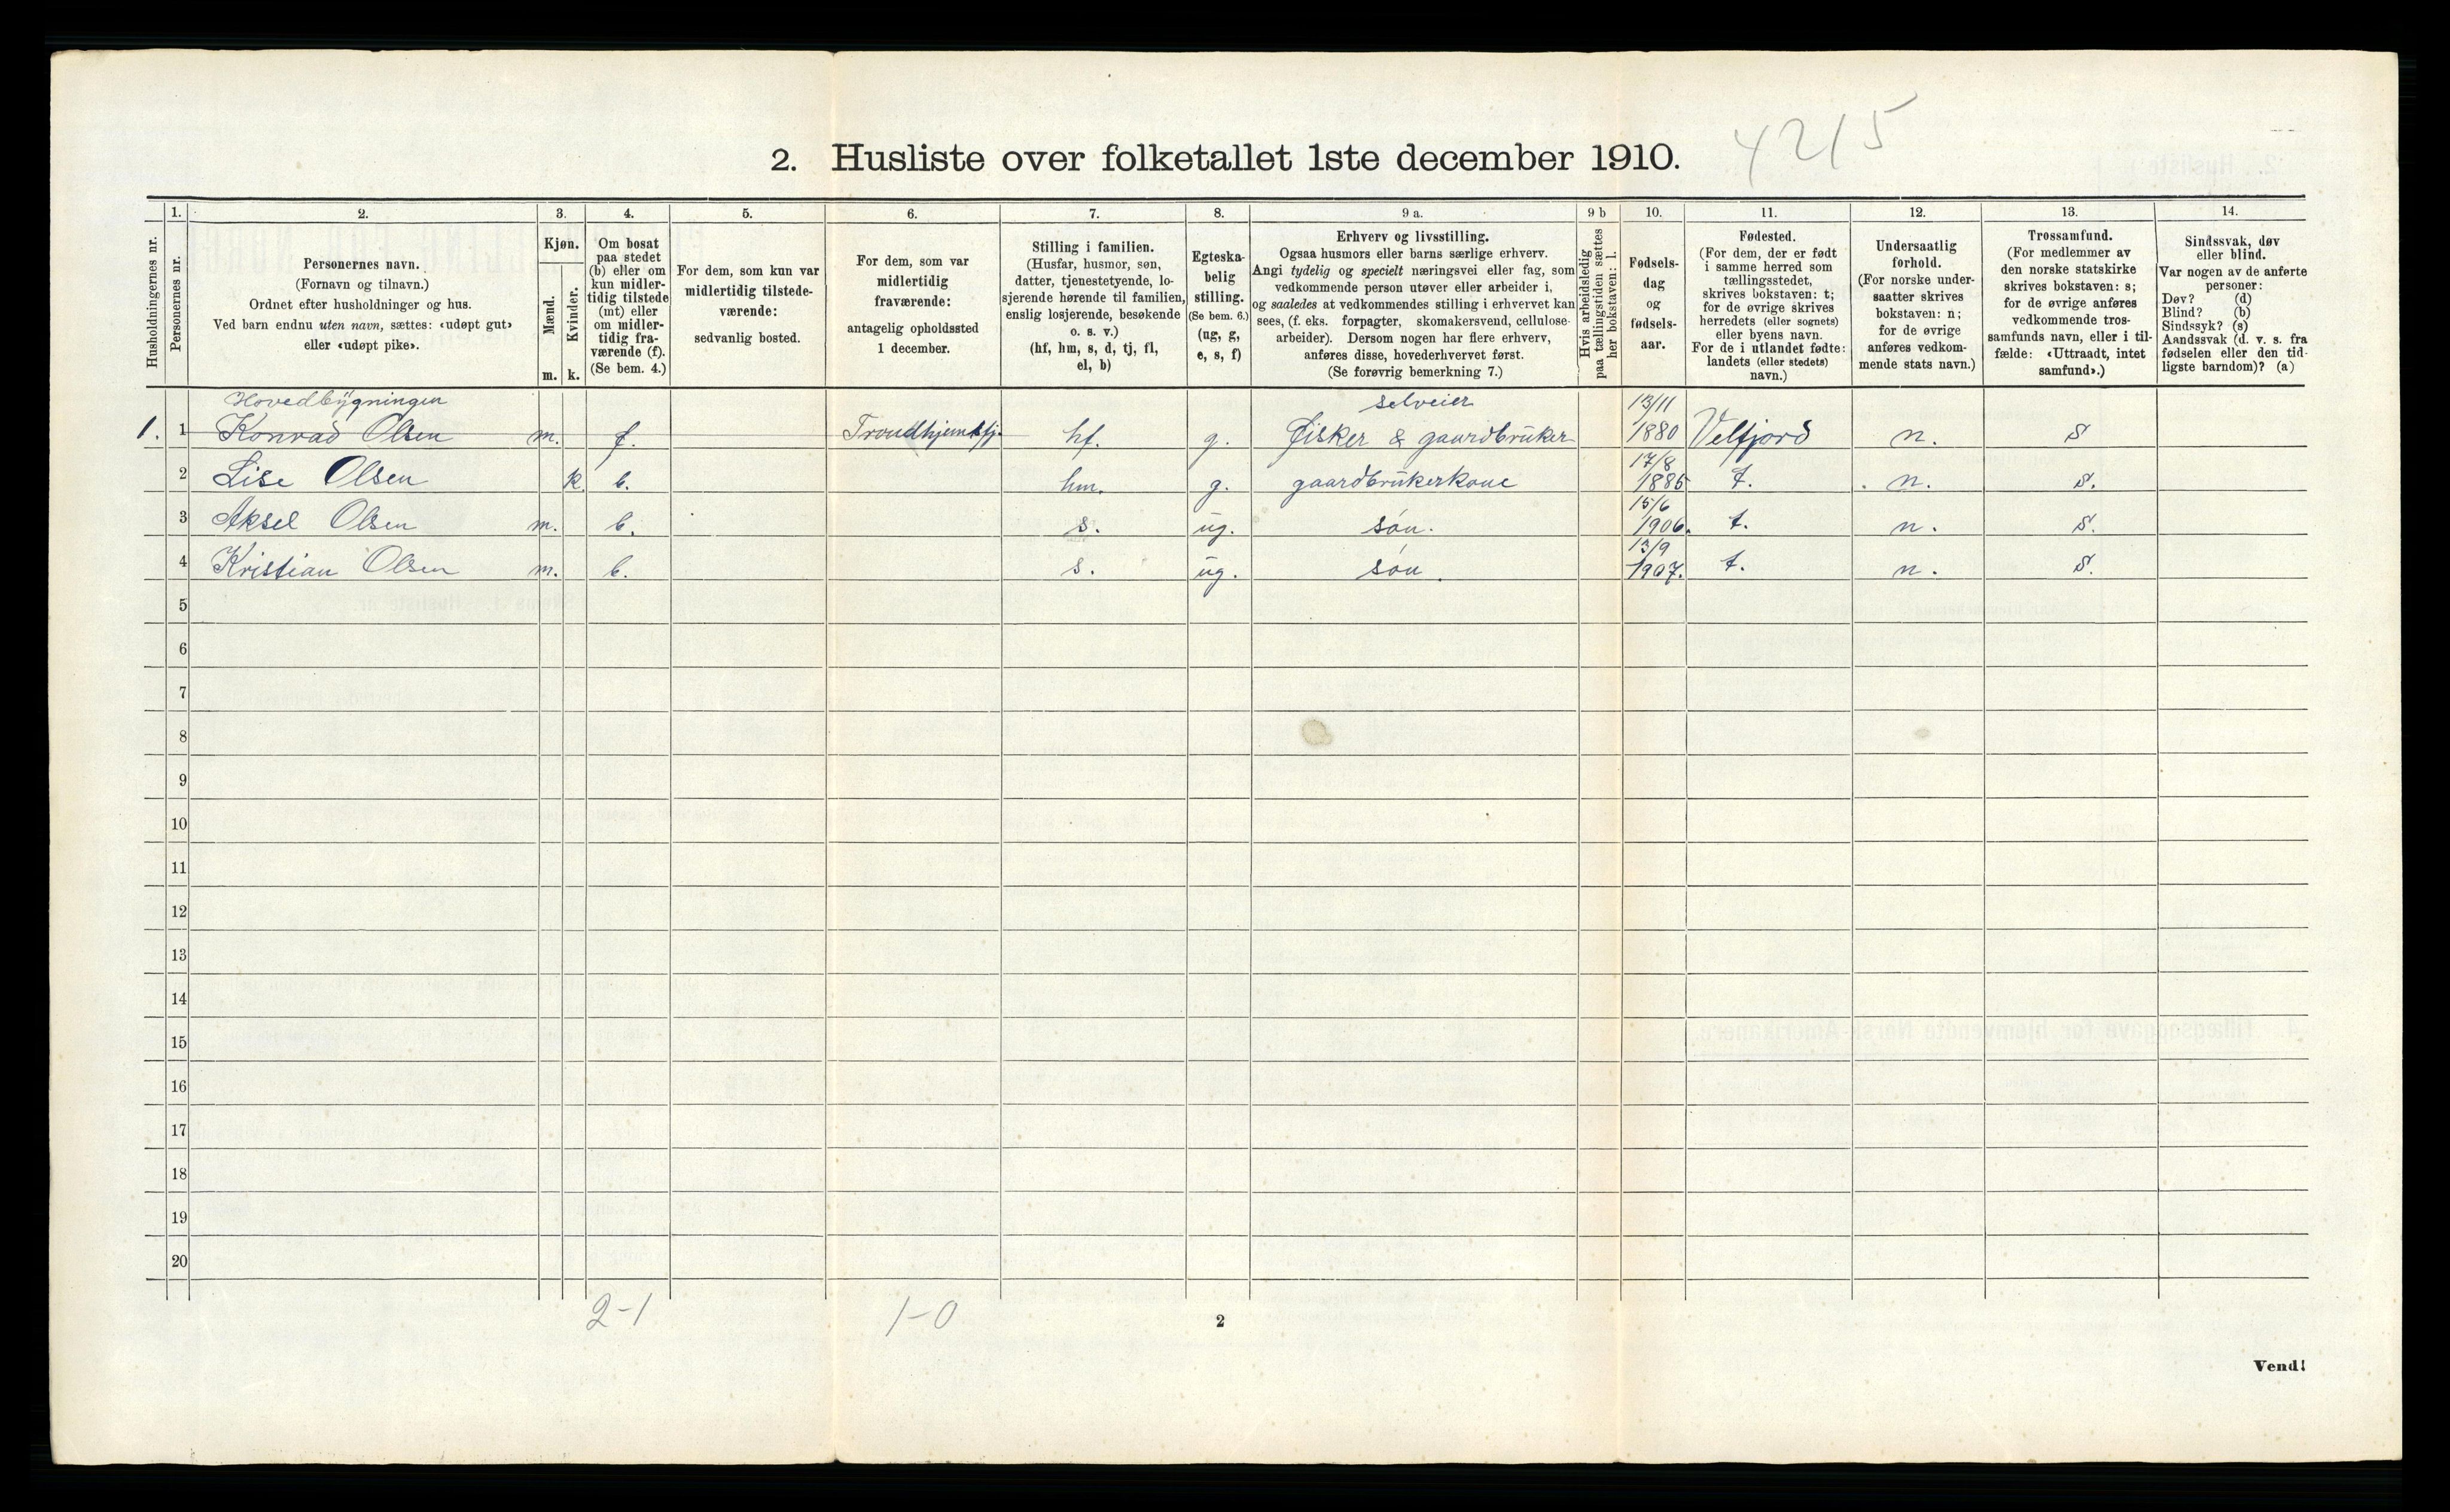 4215
2. Husliste over folketallet 1ste december 1910.
Husholdningernes nr.
1.
Personernes nr.
2.
Personernes navn.
(Fornavn og tilnavn.)
Ordnet efter husholdninger og hus.
Ved barn endnu uten navn, sættes: «udøpt gut»
eller «udøpt pike».
3.
Kjøn.
Mænd.
Kvinder.
m. k.
4.
Om bosat
paa stedet
(b) eller om
kun midler-
tidig tilstede
(mt) eller
om midler-
tidig fra-
værende (f).
(Se bem. 4.)
5.
For dem, som kun var
midlertidig tilstede-
værende:
sedvanlig bosted.
6.
For dem, som var
midlertidig
fraværende:
antagelig opholdssted
1 december.
7.
Stilling i familien.
(Husfar, husmor, søn,
datter, tjenestetyende, lo-
sjerende hørende til familien,
enslig losjerende, besøkende
o. s. v.)
(hf, hm, s, d, tj, fl,
el, b)
8.
Egteska-
belig
stilling.
(Se bem. 6.)
(ug, g,
e, s, f)
9 a.
Erhverv og livsstilling.
Ogsaa husmors eller barns særlige erhverv.
Angi tydelig og specielt næringsvei eller fag, som
vedkommende person utøver eller arbeider i,
og saaledes at vedkommendes stilling i erhvervet kan
sees, (f. eks. forpagter, skomakersvend, cellulose-
arbeider). Dersom nogen har flere erhverv,
anføres disse, hovederhvervet først.
(Se forøvrig bemerkning 7.)
9 b
Hvis arbeidsledig
paa tællingstiden sættes
her bokstaven: l.
10.
Fødsels-
dag
og
fødsels-
aar.
11.
Fødested.
(For dem, der er født
i samme herred som
tællingsstedet,
skrives bokstaven: t;
for de øvrige skrives
herredets (eller sognets)
eller byens navn.
For de i utlandet fødte:
landets (eller stedets)
navn.)
12.
Undersaatlig
forhold.
(For norske under-
saatter skrives
bokstaven: n;
for de øvrige
anføres vedkom-
mende stats navn.)
13.
Trossamfund.
(For medlemmer av
den norske statskirke
skrives bokstaven: s;
for de øvrige anføres
vedkommende tros-
samfunds navn, eller i til-
fælde: «Uttraadt, intet
samfund».)
14.
Sindssvak, døv
eller blind.
Var nogen av de anførte
personer:
Døv? (d)
Blind? (b)
Sindssyk? (s)
Aandssvak (d. v. s. fra
fødselen eller den tid-
ligste barndom)? (a)
Hovedbygningen selveier 13/11
1. 1 Konrad Olsen m. f. Trondhjemsfj. hf. g. Fisker & gaardbruker 1880 Velfjord n. s
17/8
2 Lise Olsen k. b. hm. g. gaardbrukerkone 1885 t. n. s.
15/6
3 Aksel Olsen m. b. s. ug. søn. 1906. t. n. s.
13/9
4 Kristian Olsen m. b. s. ug. søn. 1907. t. n. s.
5
6
7
8
9
10
11
12
13
14
15
16
17
18
19
20
2-1 1-0
2
Vend!